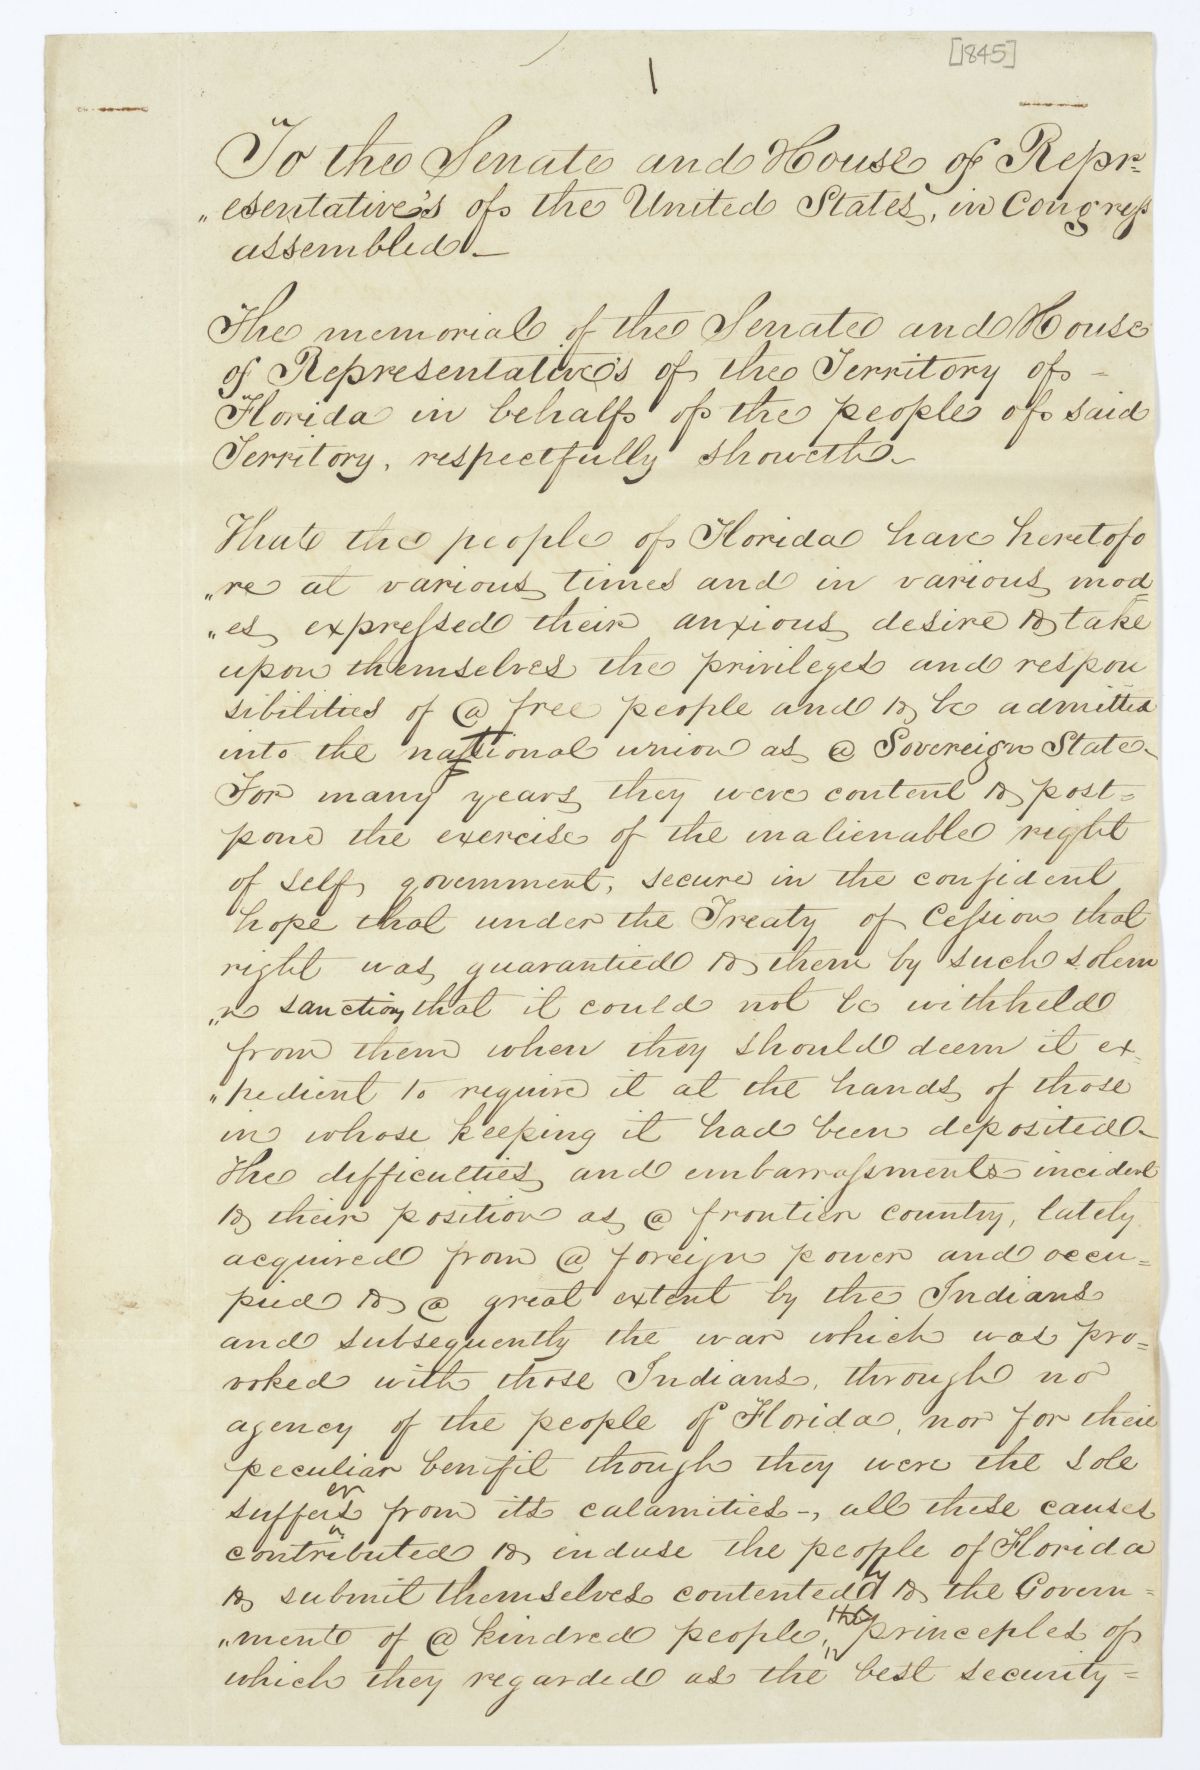 [1845]
1
To the Senate and House of Repr-
"esentative's of the United States, in Congress
assembled -
The memorial of the Senate and House
of Representative's of the Territory of -
Florida in behalf of the people of said
Territory, respectfully showeth -
That the people of Florida have heretofo
"re at various times and in various mod-
"es expressed their anxious desire to take
upon themselves the privileges and respon
sibilities of a free people and to be admitted
into the national union as a Sovereign State -
For many years they were content to post=
pone the exercise of the inalienable right
of self government, secure in the confident
hope that under the Treaty of Cession that
right was guarantied to them by such solem
"n sanction that it could not be withheld
from them when they should deem it ex=
"pedient to require it at the hands of those
in whose keeping it had been deposited -
The difficulties and embarrassments incident
to their position as a frontier country, lately
acquired from a foreign power and occu=
pied to a great extent by the Indians
and subsequently the war which was pro=
voked with those Indians, through no
agency of the people of Florida, nor for their
peculiar benifit though they were the sole
sufferers from its calamities -, all these causes
contributed to induse the people of Florida
to submit themselves contentedly to the Govern=
"ment of a kindred people, the princeples of
which they regarded as the best security =